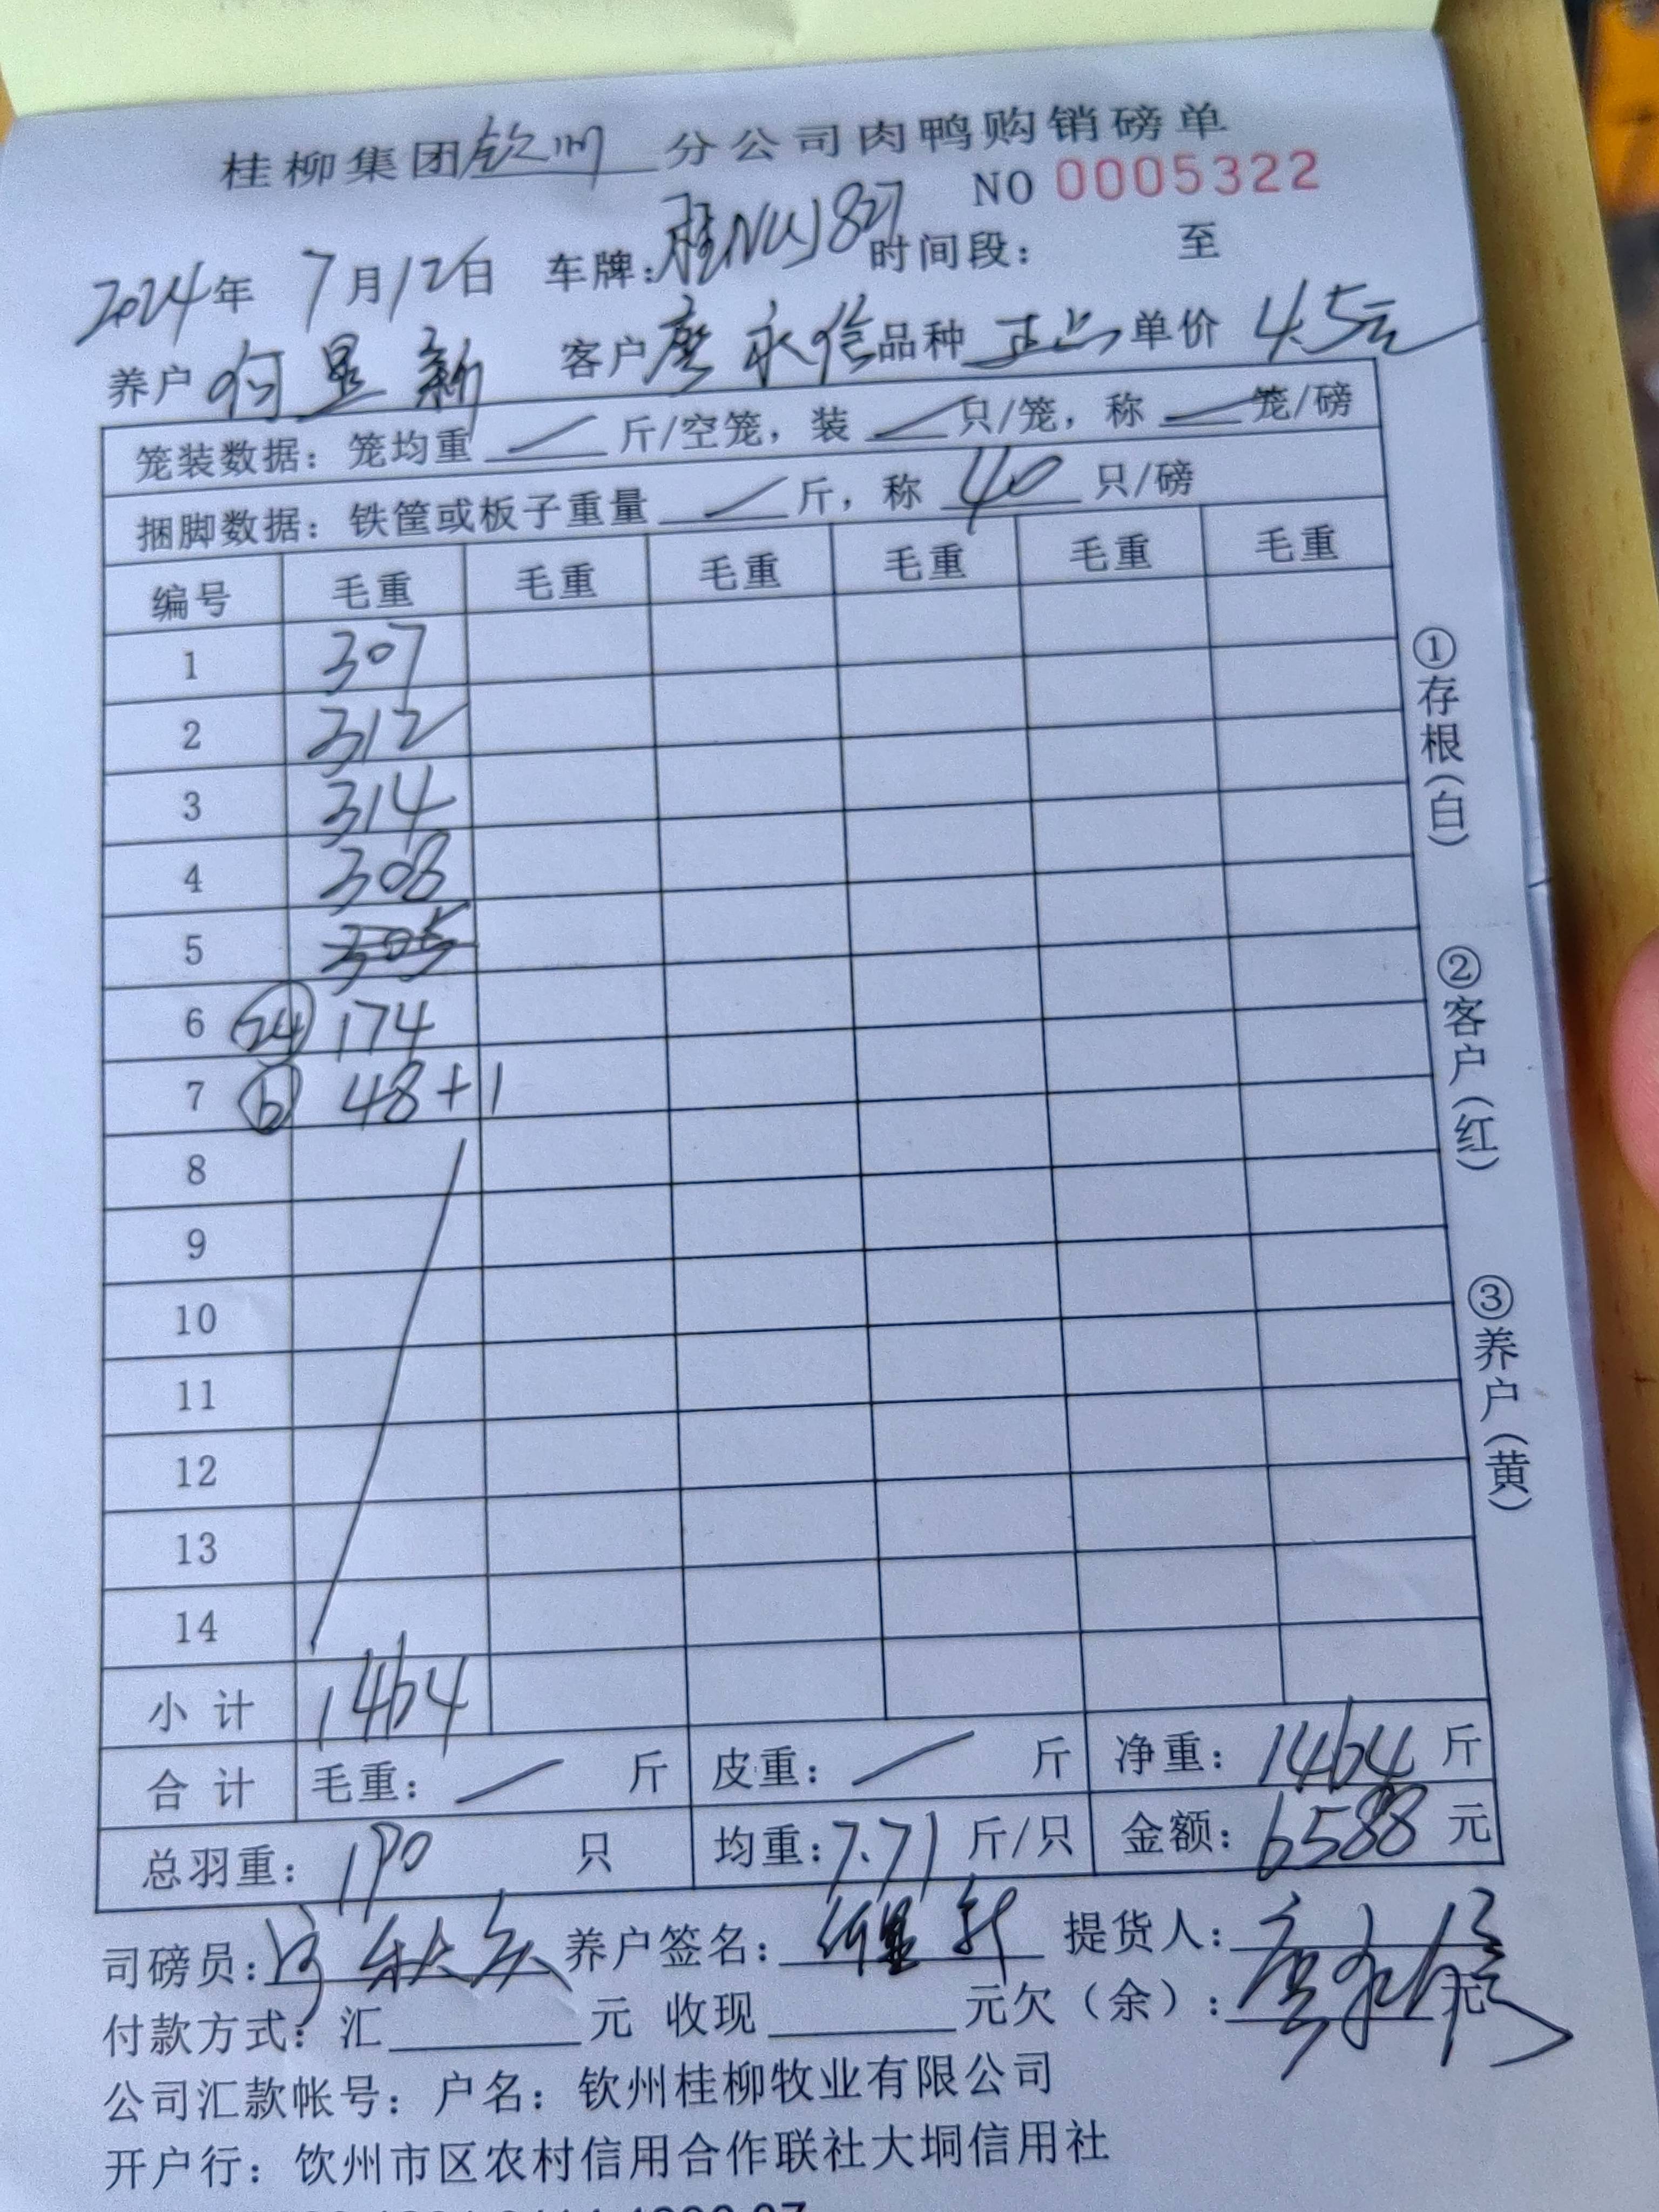 桂柳集团钦州分公司肉鸭购销磅单
NO 0005322
2024年 7月12日 车牌:桂NWJ827 时间段: 至
养户 何显新 客户 廖永信 品种 正上 单价 4.5元
笼装数据: 笼均重 / 斤/空笼, 装 / 只/笼, 称 / 笼/磅
捆脚数据: 铁筐或板子重量 / 斤, 称 40 只/磅
编号 毛重 毛重 毛重 毛重 毛重 毛重
1 307
2 312
3 314
4 308
5 305
6 24 174
7 6 48+1
8
9
10
11
12
13
14
小计 1464
合计 毛重: / 斤 皮重: / 斤 净重: 1464 斤
总羽重: 190 只 均重: 7.71 斤/只 金额: 6588 元
司磅员: 养户签名: 何显新 提货人: 廖永信
付款方式: 汇 元 收现 元欠(余): 元
公司汇款帐号: 户名: 钦州桂柳牧业有限公司
开户行: 钦州市区农村信用合作联社大垌信用社
①存根(白) ②客户(红) ③养户(黄)